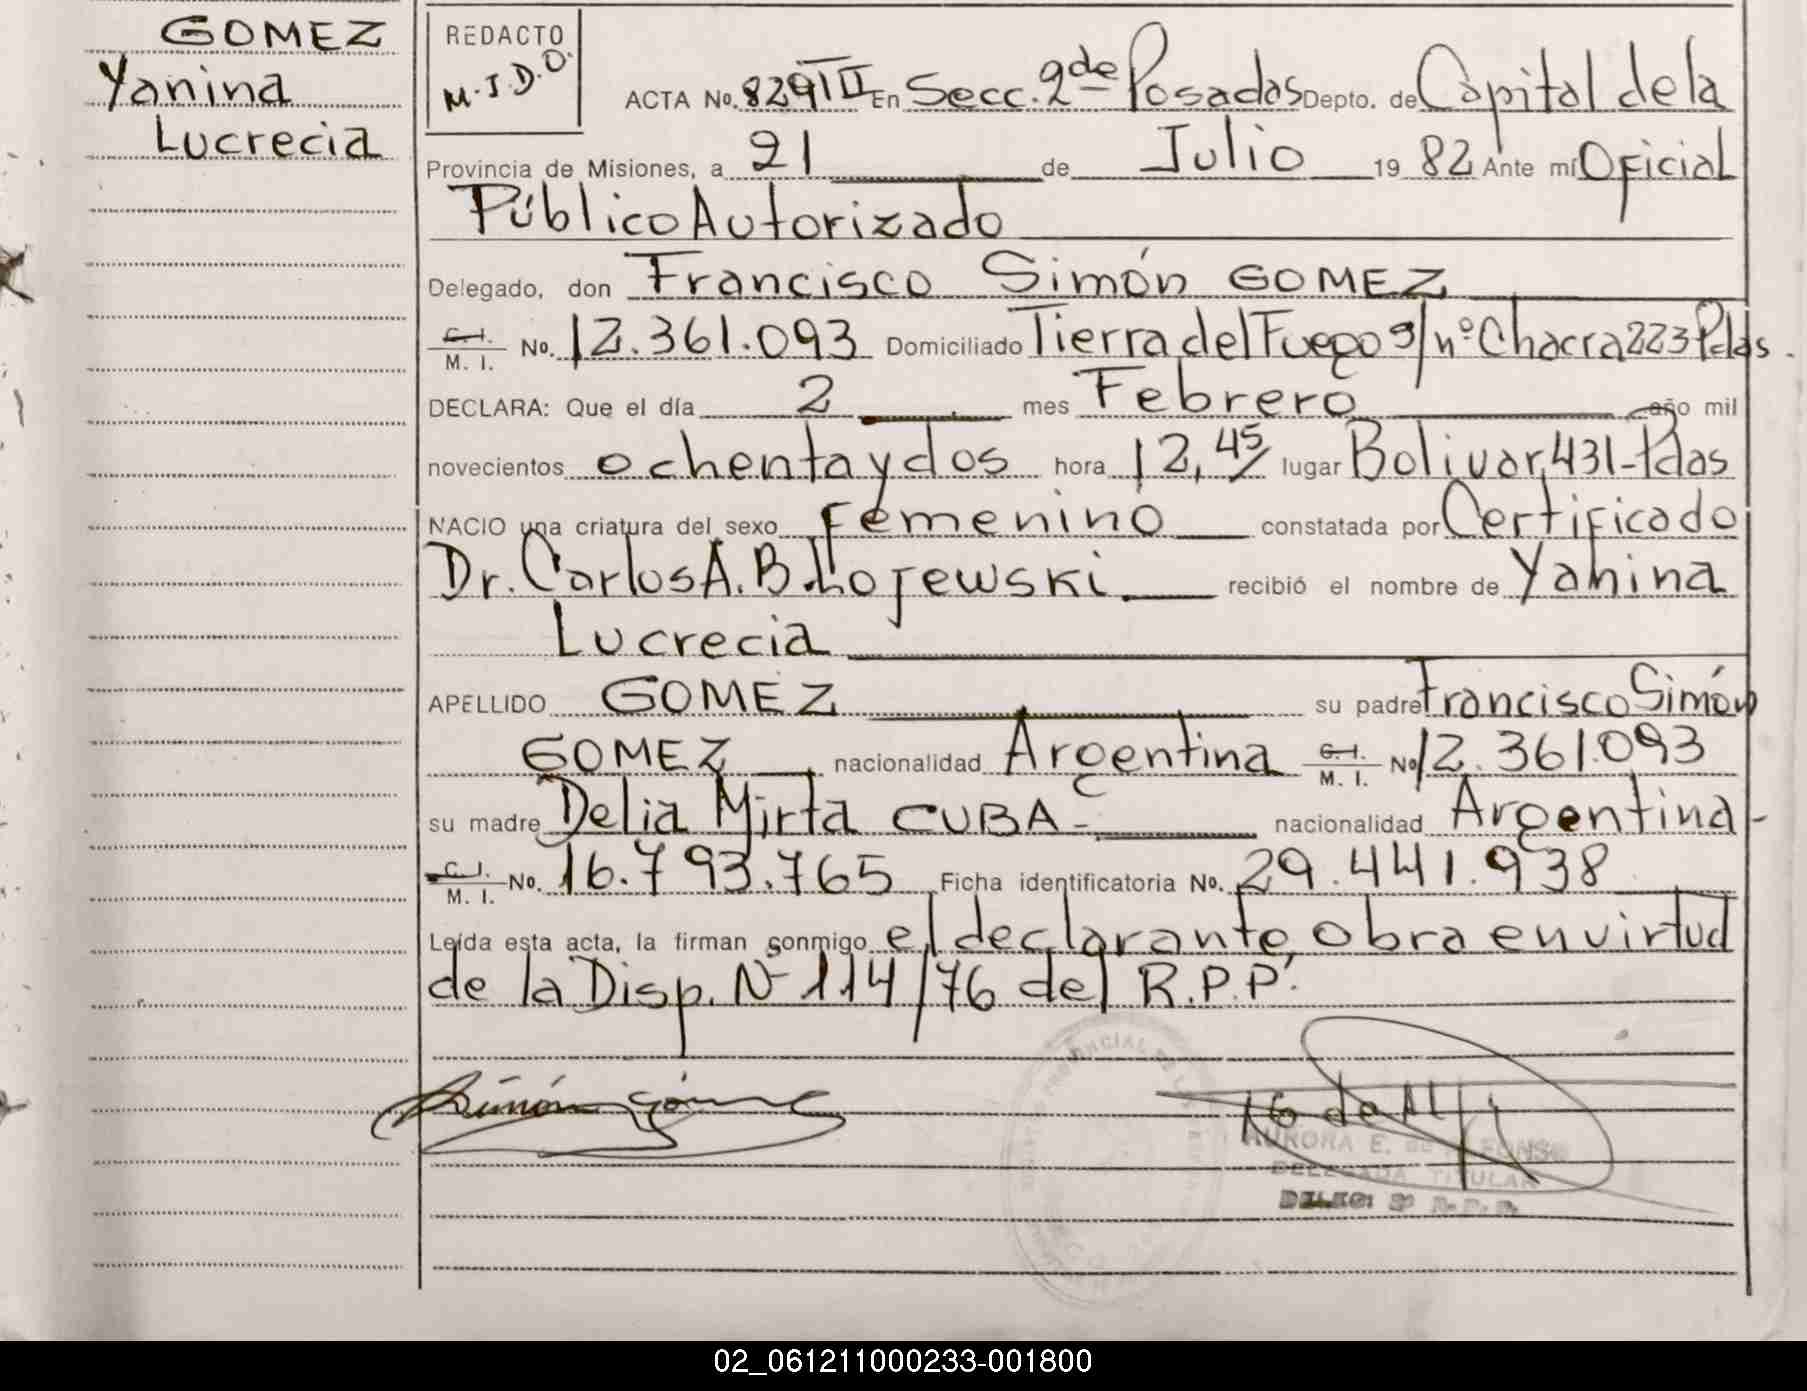 GOMEZ
Yanina
Lucrecia
REDACTO
M.J.D.O.
ACTA No. 829 TII En Secc. 2de Posadas Depto. de Capital de la
Provincia de Misiones, a 21 de Julio 19 82 Ante mí Oficial
Público Autorizado
Delegado, don Francisco Simón GOMEZ
C. I. M. I. No. 12.361.093 Domiciliado Tierra del Fuego s/nº Chacra 223 Pdas.
DECLARA: Que el día 2 mes Febrero año mil
novecientos ochenta y dos hora 12,45 lugar Bolivar, 431-Pdas
NACIO una criatura del sexo Femenino constatada por Certificado
Dr. Carlos A. B. Lojewski recibió el nombre de Yanina
Lucrecia
APELLIDO GOMEZ su padre Francisco Simón
GOMEZ nacionalidad Argentina C. I. M. I. No. 12.361.093
su madre Delia Mirta CUBA - nacionalidad Argentina-
C. I. M. I. No. 16.793.765 Ficha identificatoria No. 29.441.938
Leída esta acta, la firman conmigo el declarante, obra en virtud
de la Disp. Nº 114/76 del R.P.P.
Simón Gómez
AURORA E. DE
DELEGADA TITULAR
DELEG. 2ª R.P.P.
02_061211000233-001800